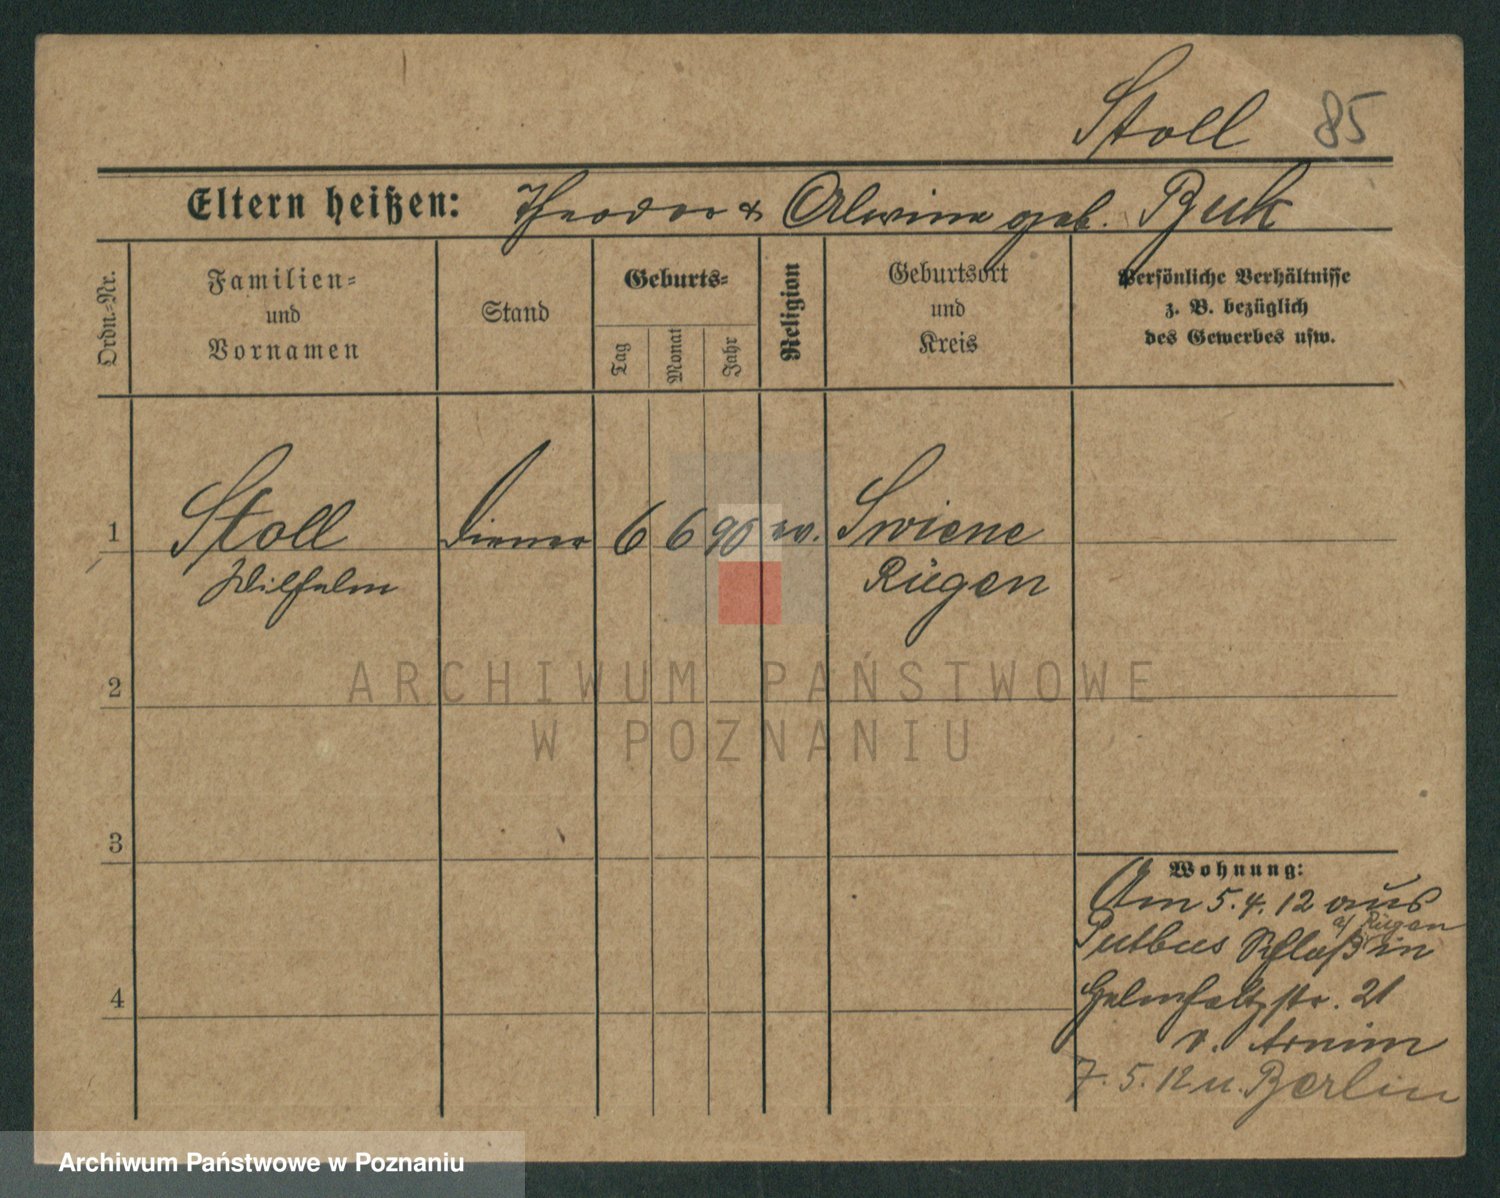 Stoll 85
Eltern heißen: Theodor & Alwine geb. Buk
Ordn.-Nr.
Familien-
und
Vornamen
Stand
Geburts-
Tag
Monat
Jahr
Religion
Geburtsort
und
Kreis
Persönliche Verhältnisse
z. B. bezüglich
des Gewerbes usw.
1 Stoll Diener 6 6 90 ev. Swiene
Wilhelm Rügen
2
ARCHIWUM PAŃSTWOWE
W POZNANIU
3
Wohnung:
Am 5.4.12 aus
a/ Rügen
Putbus Schloß in
4
Helmholtzstr. 21
v. Arnim
7. 5. 12 n. Berlin
Archiwum Państwowe w Poznaniu